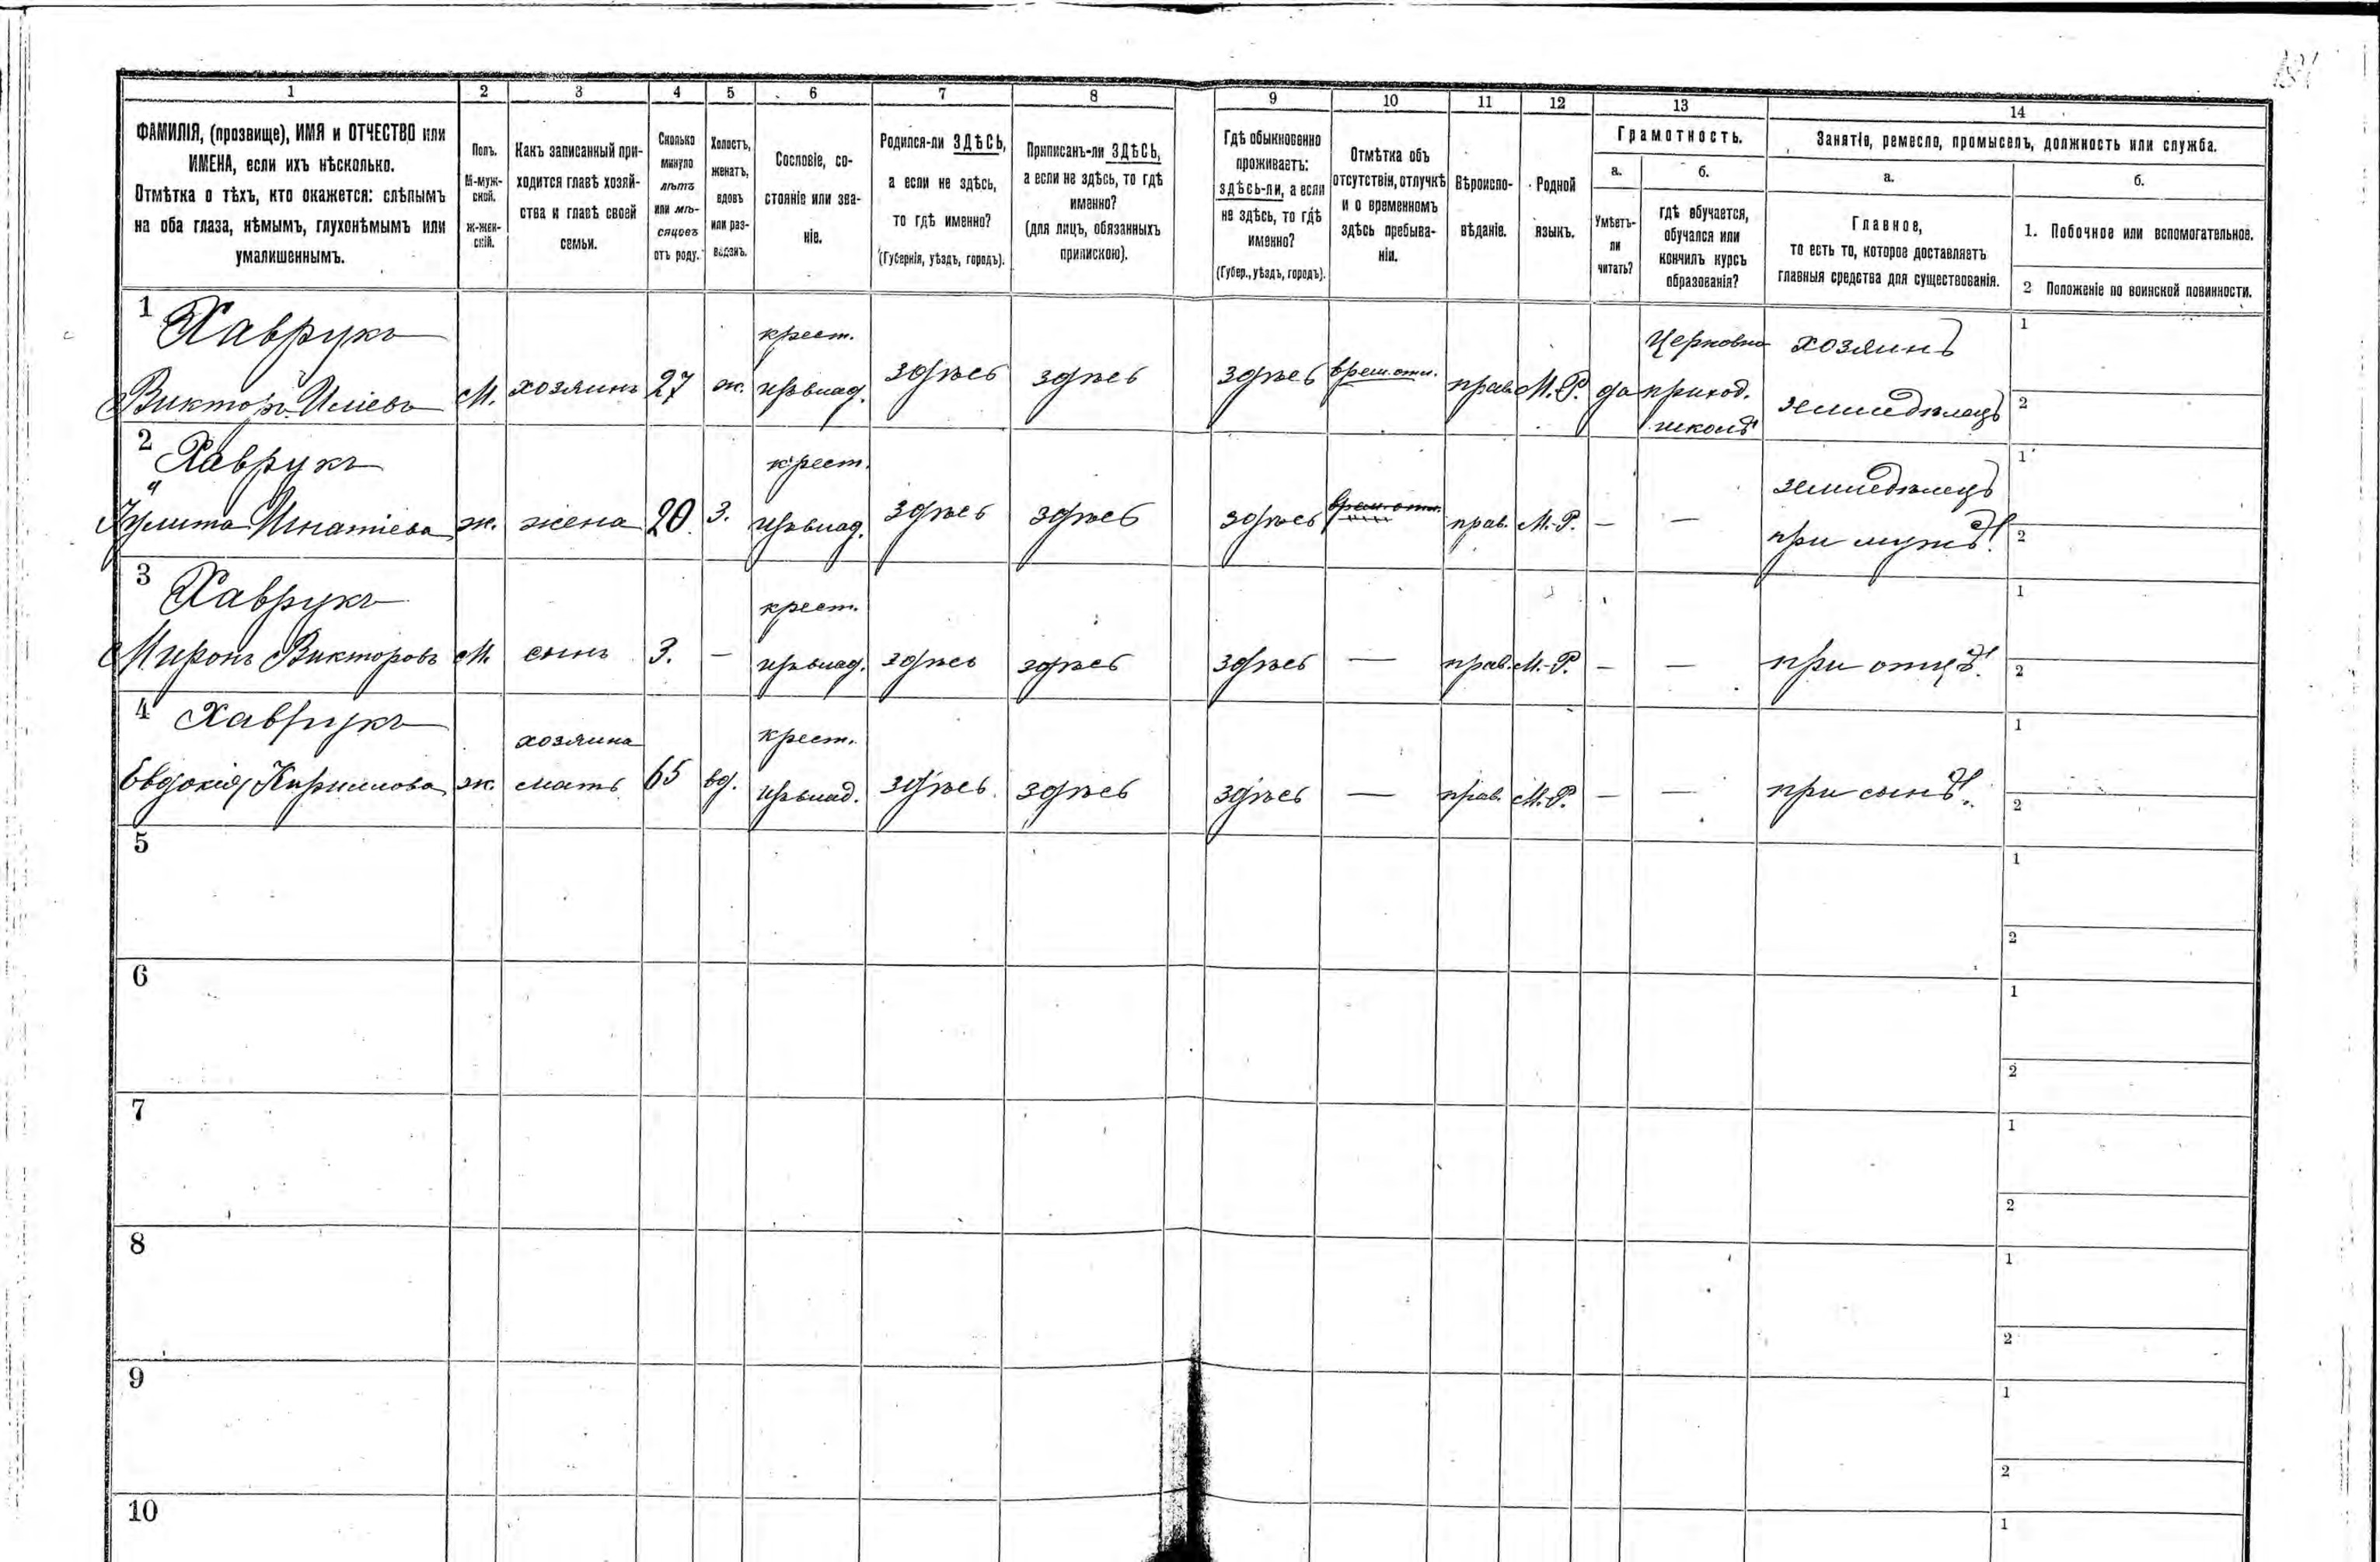 1 2 3 4 5 6 7 8 9 10 11 12 13 14
ФАМИЛІЯ, (прозвище), ИМЯ и ОТЧЕСТВО или
ИМЕНА, если ихъ нѣсколько.
Отмѣтка о тѣхъ, кто окажется: слѣпымъ
на оба глаза, нѣмымъ, глухонѣмымъ или
умалишеннымъ.
Полъ.
М-муж-
ской.
Ж-жен-
скій.
Какъ записанный при-
ходится главѣ хозяй-
ства и главѣ своей
семьи.
Сколько
минуло
лѣтъ
или мѣ-
сяцовъ
отъ роду.
Холостъ,
женатъ,
вдовъ
или раз-
веденъ.
Сословіе, со-
стояніе или зва-
ніе.
Родился-ли ЗДѢСЬ,
а если не здѣсь,
то гдѣ именно?
(Губернія, уѣздъ, городъ).
Приписанъ-ли ЗДѢСЬ,
а если не здѣсь, то гдѣ
именно?
(для лицъ, обязанныхъ
припискою).
Гдѣ обыкновенно
проживаетъ:
здѣсь-ли, а если
не здѣсь, то гдѣ
именно?
(Губер., уѣздъ, городъ).
Отмѣтка объ
отсутствіи, отлучкѣ
и о временномъ
здѣсь пребыва-
ніи.
Вѣроиспо-
вѣданіе.
Родной
языкъ.
Грамотность.
а.
Умѣетъ-
ли
читать?
б.
гдѣ обучается,
обучался или
кончилъ курсъ
образованія?
Занятіе, ремесло, промыселъ, должность или служба.
а.
Главное,
то есть то, которое доставляетъ
главныя средства для существованія.
б.
1. Побочное или вспомогательное.
2 Положеніе по воинской повинности.
1 Хаврукъ крест. Церковно хозяинъ 1
Викторъ Иліевъ М. хозяинъ 27 ж. здѣсь здѣсь здѣсь врем. отл. прав. М.-Р. да приход. земледѣлецъ 2
школѣ
2 Хаврукъ крест. земледѣлецъ 1
Іулита Игнатіева ж. жена 20. з. здѣсь здѣсь здѣсь врем. отл. прав. М.-Р. — — при мужѣ. 2
3 Хаврукъ крест. 1
Миронъ Викторовъ М. сынъ 3. — здѣсь здѣсь здѣсь — прав. М.-Р. — — при отцѣ. 2
4 Хаврукъ хозяина крест. 1
Евдокія Кириллова ж. мать 65 вд. здѣсь здѣсь здѣсь — прав. М.-Р. — — при сынѣ. 2
5 1
2
6 1
2
7 1
2
8 1
2
9 1
2
10 1